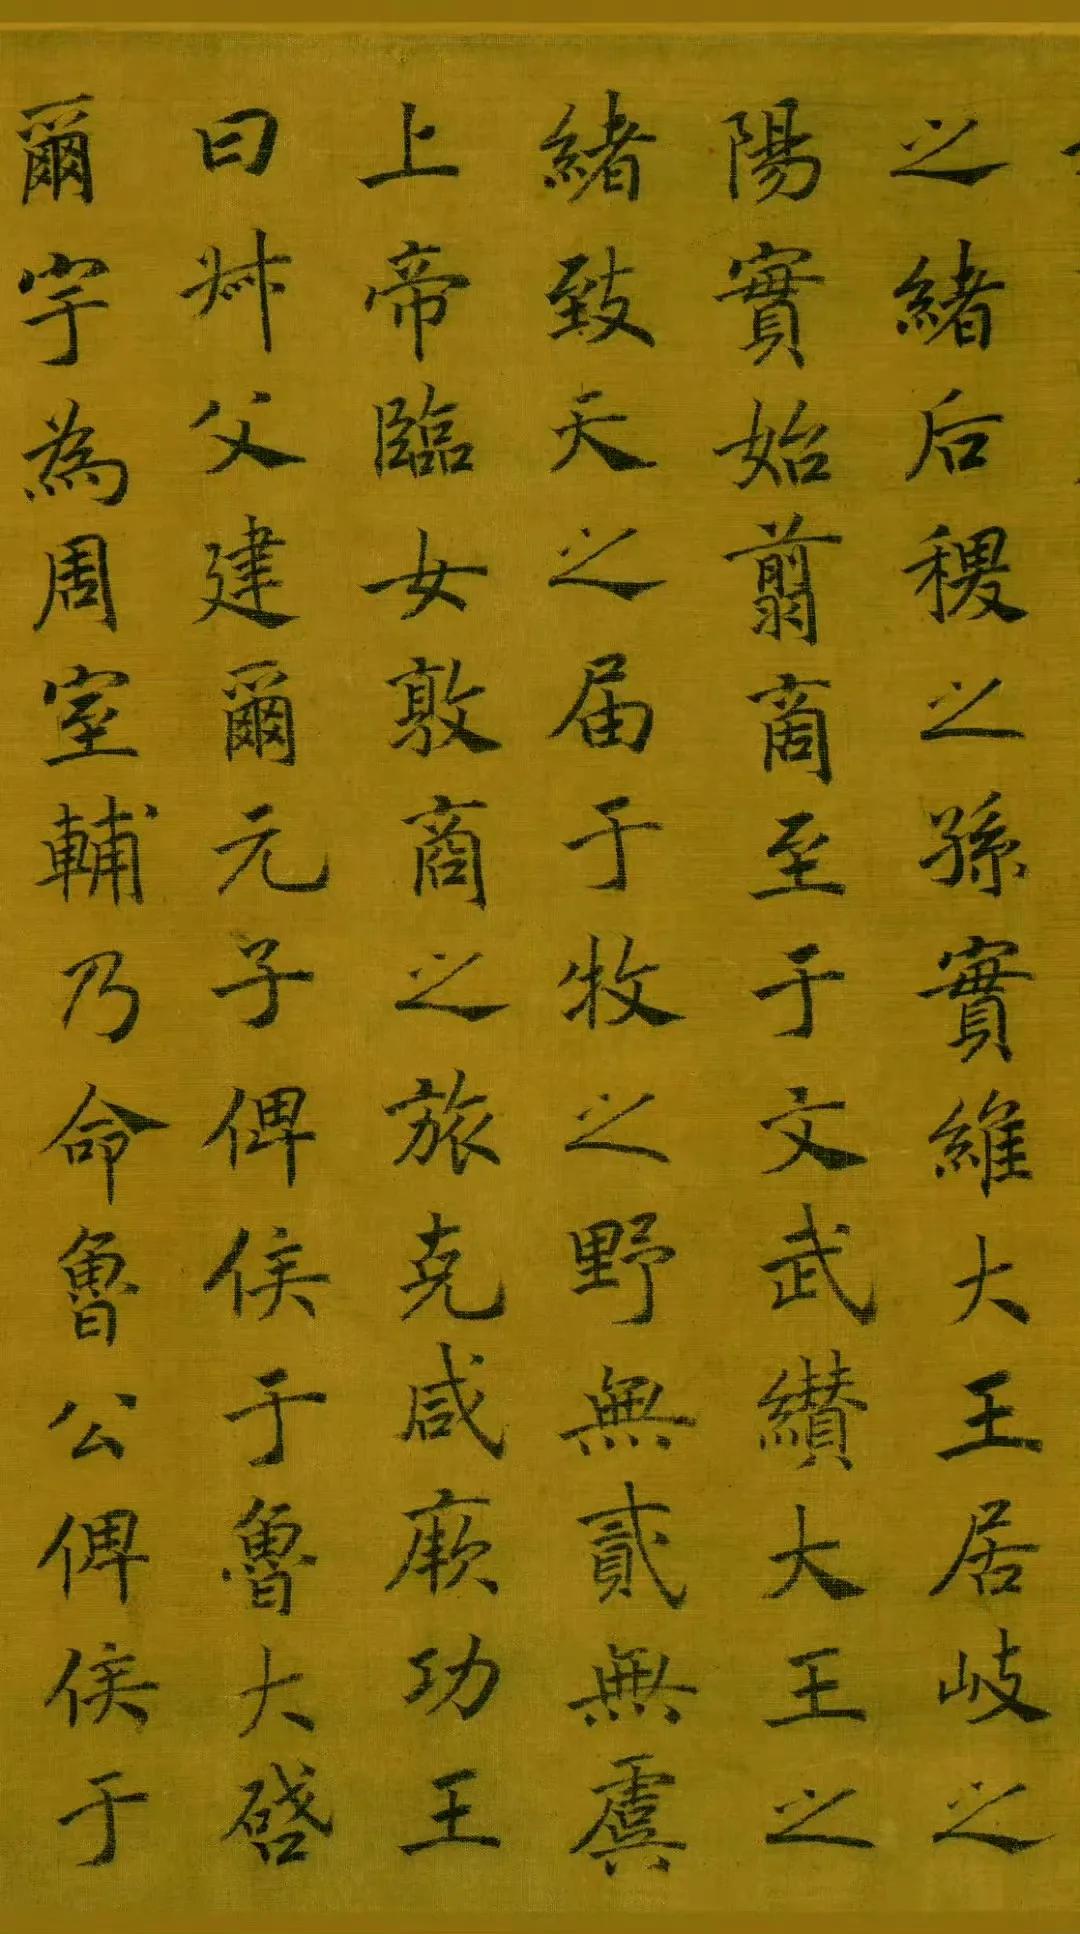 之緒后稷之孫實維大王居岐之
陽實始翦商至于文武纘大王之
緒致天之届于牧之野無貳無虞
上帝臨女敦商之旅克咸厥功王
曰叔父建爾元子俾侯于魯大啓
爾宇為周室輔乃命魯公俾侯于